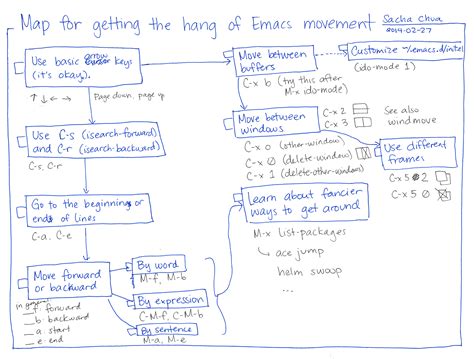 Map for getting the hang of Emacs movement
Sacha Chua
2014-02-27
Use basic arrow keys
(it's okay).
↑ ↓ ← →
Page down, page up
Use C-s (isearch-forward)
and C-r (isearch-backward)
C-s, C-r
Go to the beginning or
end of lines
C-a, C-e
Move forward
or backward
f: forward
b: backward
a: start
e: end
By word
M-f, M-b
By expression
C-M-f, C-M-b
By sentence
M-a, M-e
Move between
buffers
C-x b (try this after
M-x ido-mode)
Customize ~/.emacs.d/init.el
(ido-mode 1)
Move between
windows
C-x 2
C-x 3
See also
windmove
C-x o (other-window)
C-x 0 (delete-window)
C-x 1 (delete-other-window)
Use different
frames
C-x 5 2
C-x 5 0
Learn about fancier
ways to get around
M-x list-packages
ace jump
helm swoop
...